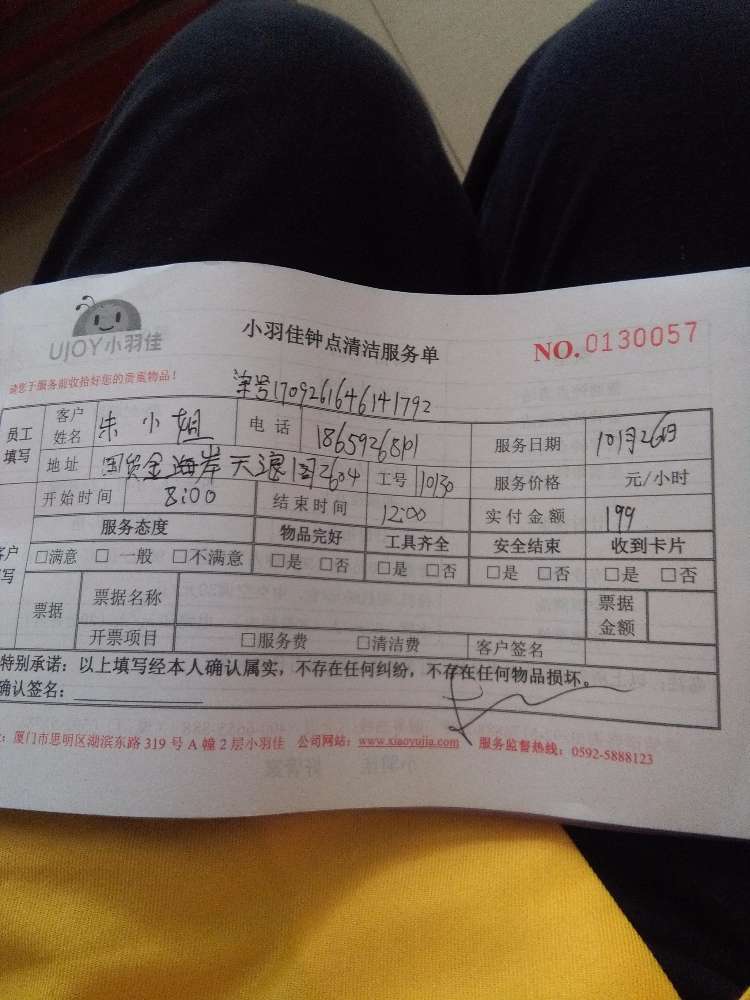 UJOY小羽佳
小羽佳钟点清洁服务单
NO.0130057
请您于服务前收拾好您的贵重物品!
单号1709261646141792
员工填写 客户姓名 朱小姐 电话 服务日期 10月26日
地址 国贸金海岸天浪阁2604 工号 11030 服务价格 元/小时
开始时间 8:00 结束时间 12:00 实付金额 199
客户填写 服务态度 物品完好 工具齐全 安全结束 收到卡片
□满意 □一般 □不满意 □是 □否 □是 □否 □是 □否 □是 □否
票据 票据名称 票据金额
开票项目 □服务费 □清洁费 客户签名
特别承诺:以上填写经本人确认属实,不存在任何纠纷,不存在任何物品损坏。
确认签名:
:厦门市思明区湖滨东路 319 号 A 幢 2 层小羽佳 公司网站:www.xiaoyujia.com 服务监督热线:0592-5888123